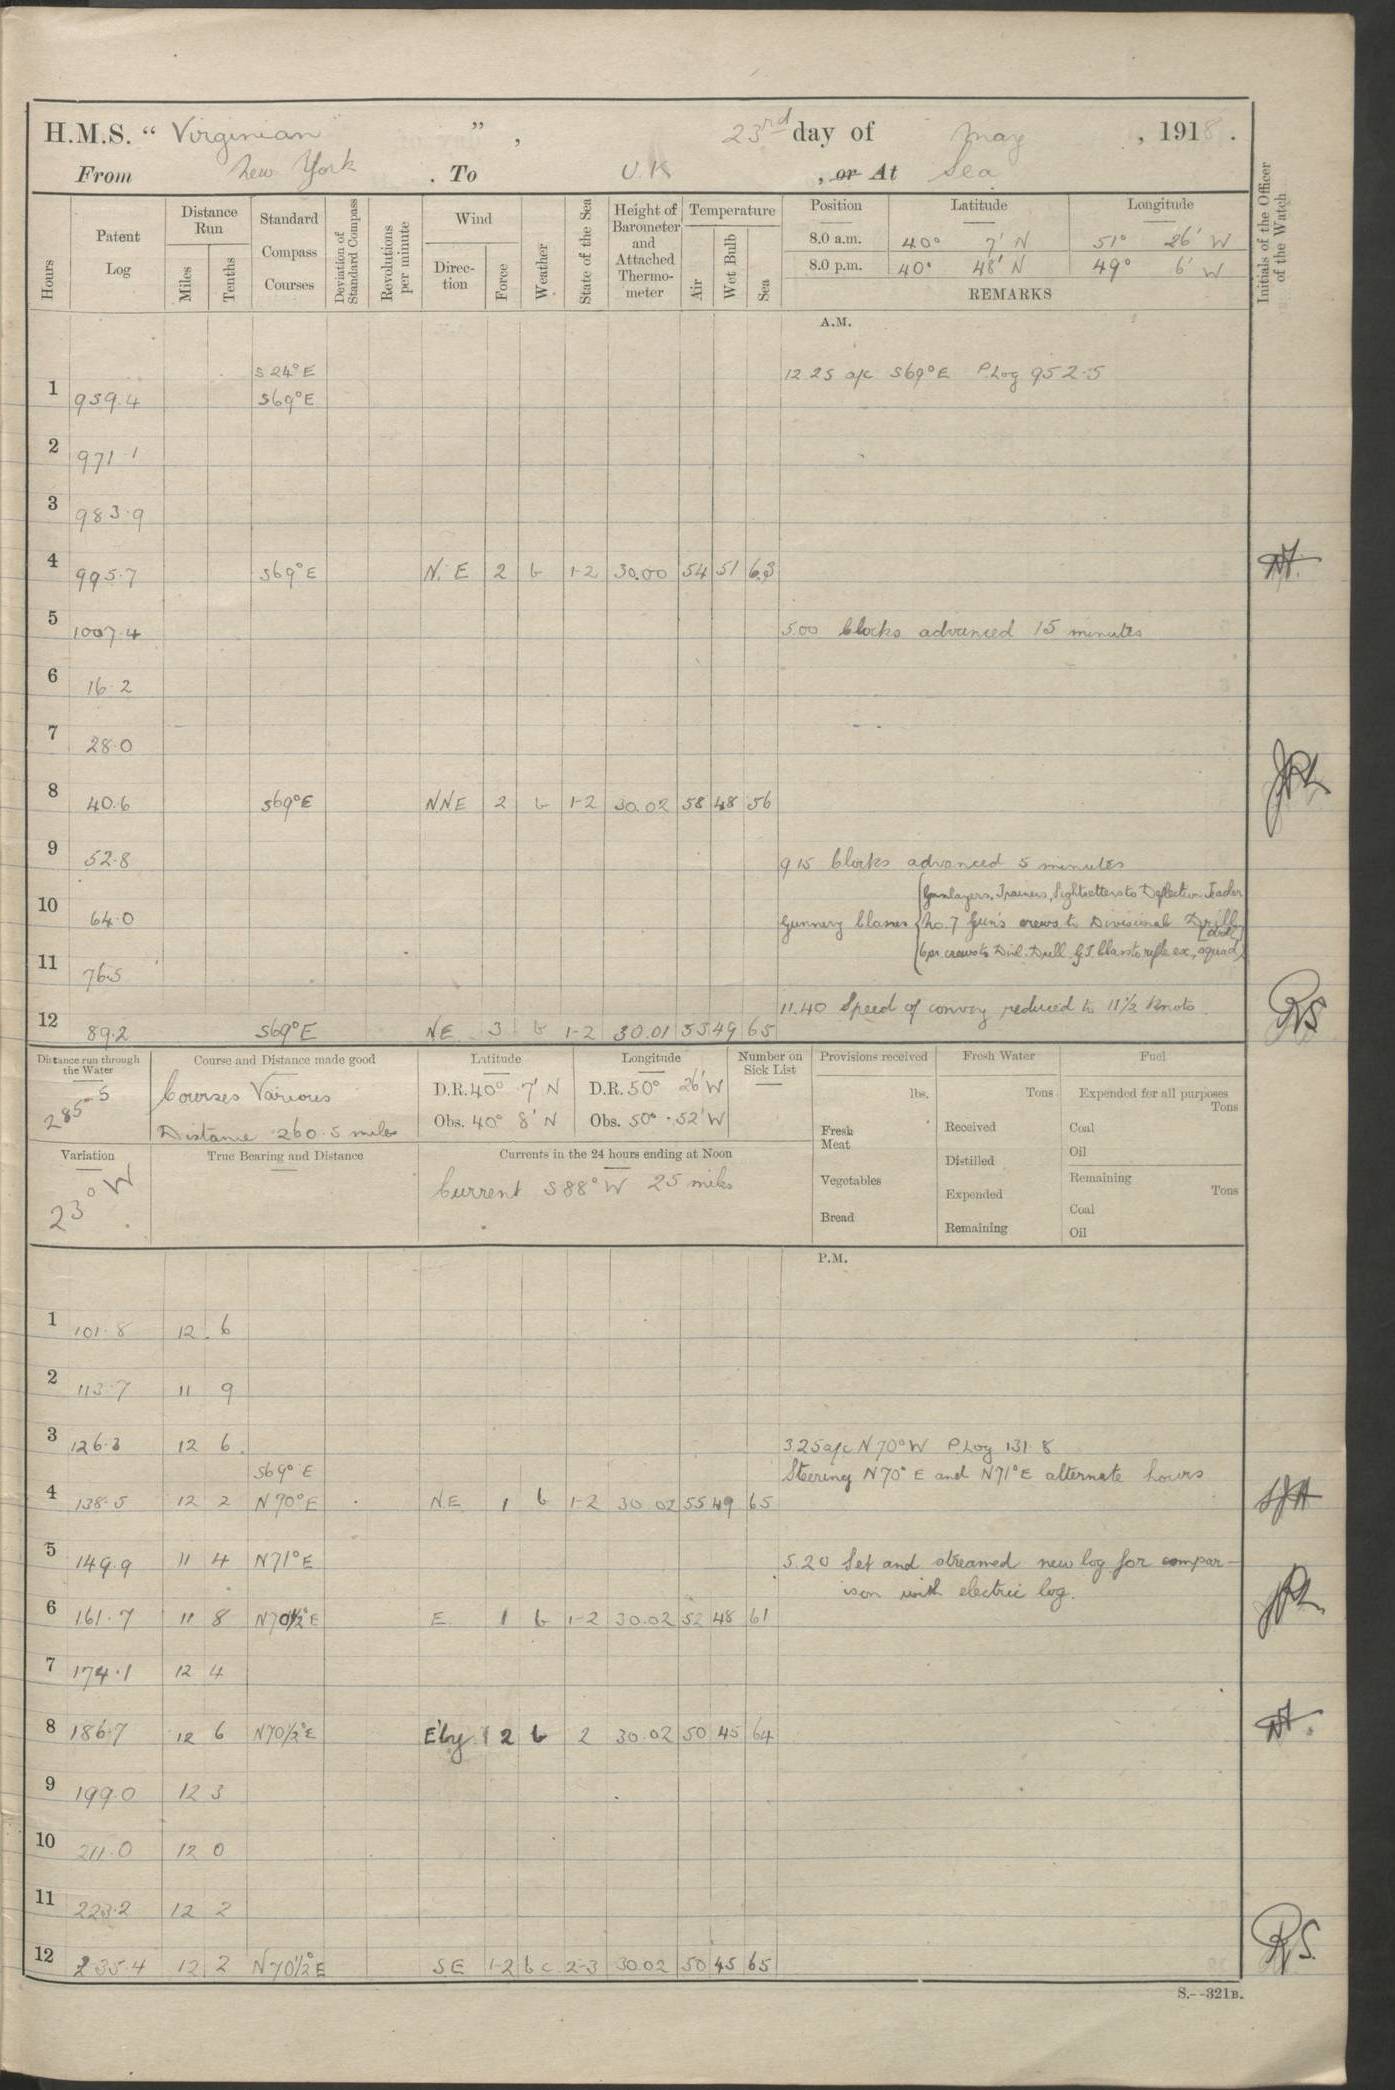 H.M.S. “ Virginian ” , 23rd day of May , 1918 .
From New York . To U.K , or At Sea
Hours
Patent Log
Distance Run
Miles
Tenths
Standard Compass Courses
Deviation of Standard Compass
Revolutions per minute
Wind
Direction
Force
Weather
State of the Sea
Height of Barometer and Attached Thermometer
Temperature
Air
Wet Bulb
Sea
Position Latitude Longitude
8.0 a.m. 40° 7' N 51° 26' W
8.0 p.m. 40° 48' N 49° 6' W
REMARKS
Initials of the Officer of the Watch
A.M.
S 24° E 12 25 a/c S69°E P.Log 952.5
1 959.4 S69°E
2 971.1
3 983.9
4 995.7 S69°E N.E 2 b 1-2 30.00 54 51 63
5 1007.4 5.00 Clocks advanced 15 minutes
6 16.2
7 28.0
8 40.6 S69°E NNE 2 b 1-2 30.02 58 48 56
9 52.8 9 15 Clocks advanced 5 minutes
Gunlayers, Trainers, Sightsetters to Deflection Teacher
10 64.0 Gunnery Classes No. 7 Gun's crews to Divisional Drill
6pr. crews to Divl. Drill G.T. Class to rifle ex, squad [drill]
11 76.5
11.40 Speed of convoy reduced to 11½ Knots
12 89.2 S69°E NE 3 b 1-2 30.01 55 49 65
Distance run through the Water
285.5
Course and Distance made good
Courses Various
Distance 260.5 miles
Latitude
D.R. 40° 7' N
Obs. 40° 8' N
Longitude
D.R. 50° 26' W
Obs. 50° 52' W
Number on Sick List
Provisions received
lbs.
Fresh Meat
Vegetables
Bread
Fresh Water
Tons
Received
Distilled
Expended
Remaining
Fuel
Expended for all purposes
Tons
Coal
Oil
Remaining
Tons
Coal
Oil
Variation
23° W
True Bearing and Distance
Currents in the 24 hours ending at Noon
Current S88°W 25 miles
P.M.
1 101.8 12 . 6
2 113.7 11 9
3 126.3 12 6. 3.25 a/c N70°W P Log 131.8
S69°E Steering N70°E and N71°E alternate hours
4 138.5 12 2 N70°E NE 1 b 1-2 30.02 55 49 65
5 149.9 11 4 N71°E 5.20 Set and streamed new log for compar-
ison with electric log.
6 161.7 11 8 N70½°E E 1 b 1-2 30.02 52 48 61
7 174.1 12 4
8 186.7 12 6 N70½°E E'ly 2 b 2 30.02 50 45 64
9 199.0 12 3
10 211.0 12 0
11 223.2 12 2
12 235.4 12 2 N70½°E SE 1-2 b c 2-3 30.02 50 45 65
S.--321B.